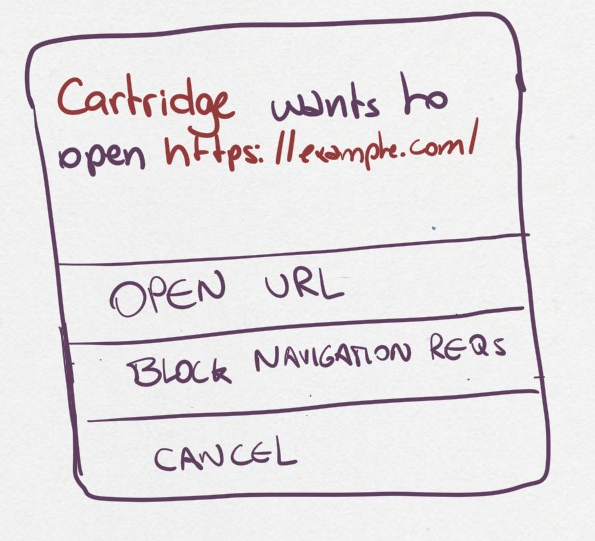 Cartridge wants to
open https://example.com/
OPEN URL
BLOCK NAVIGATION REQS
CANCEL